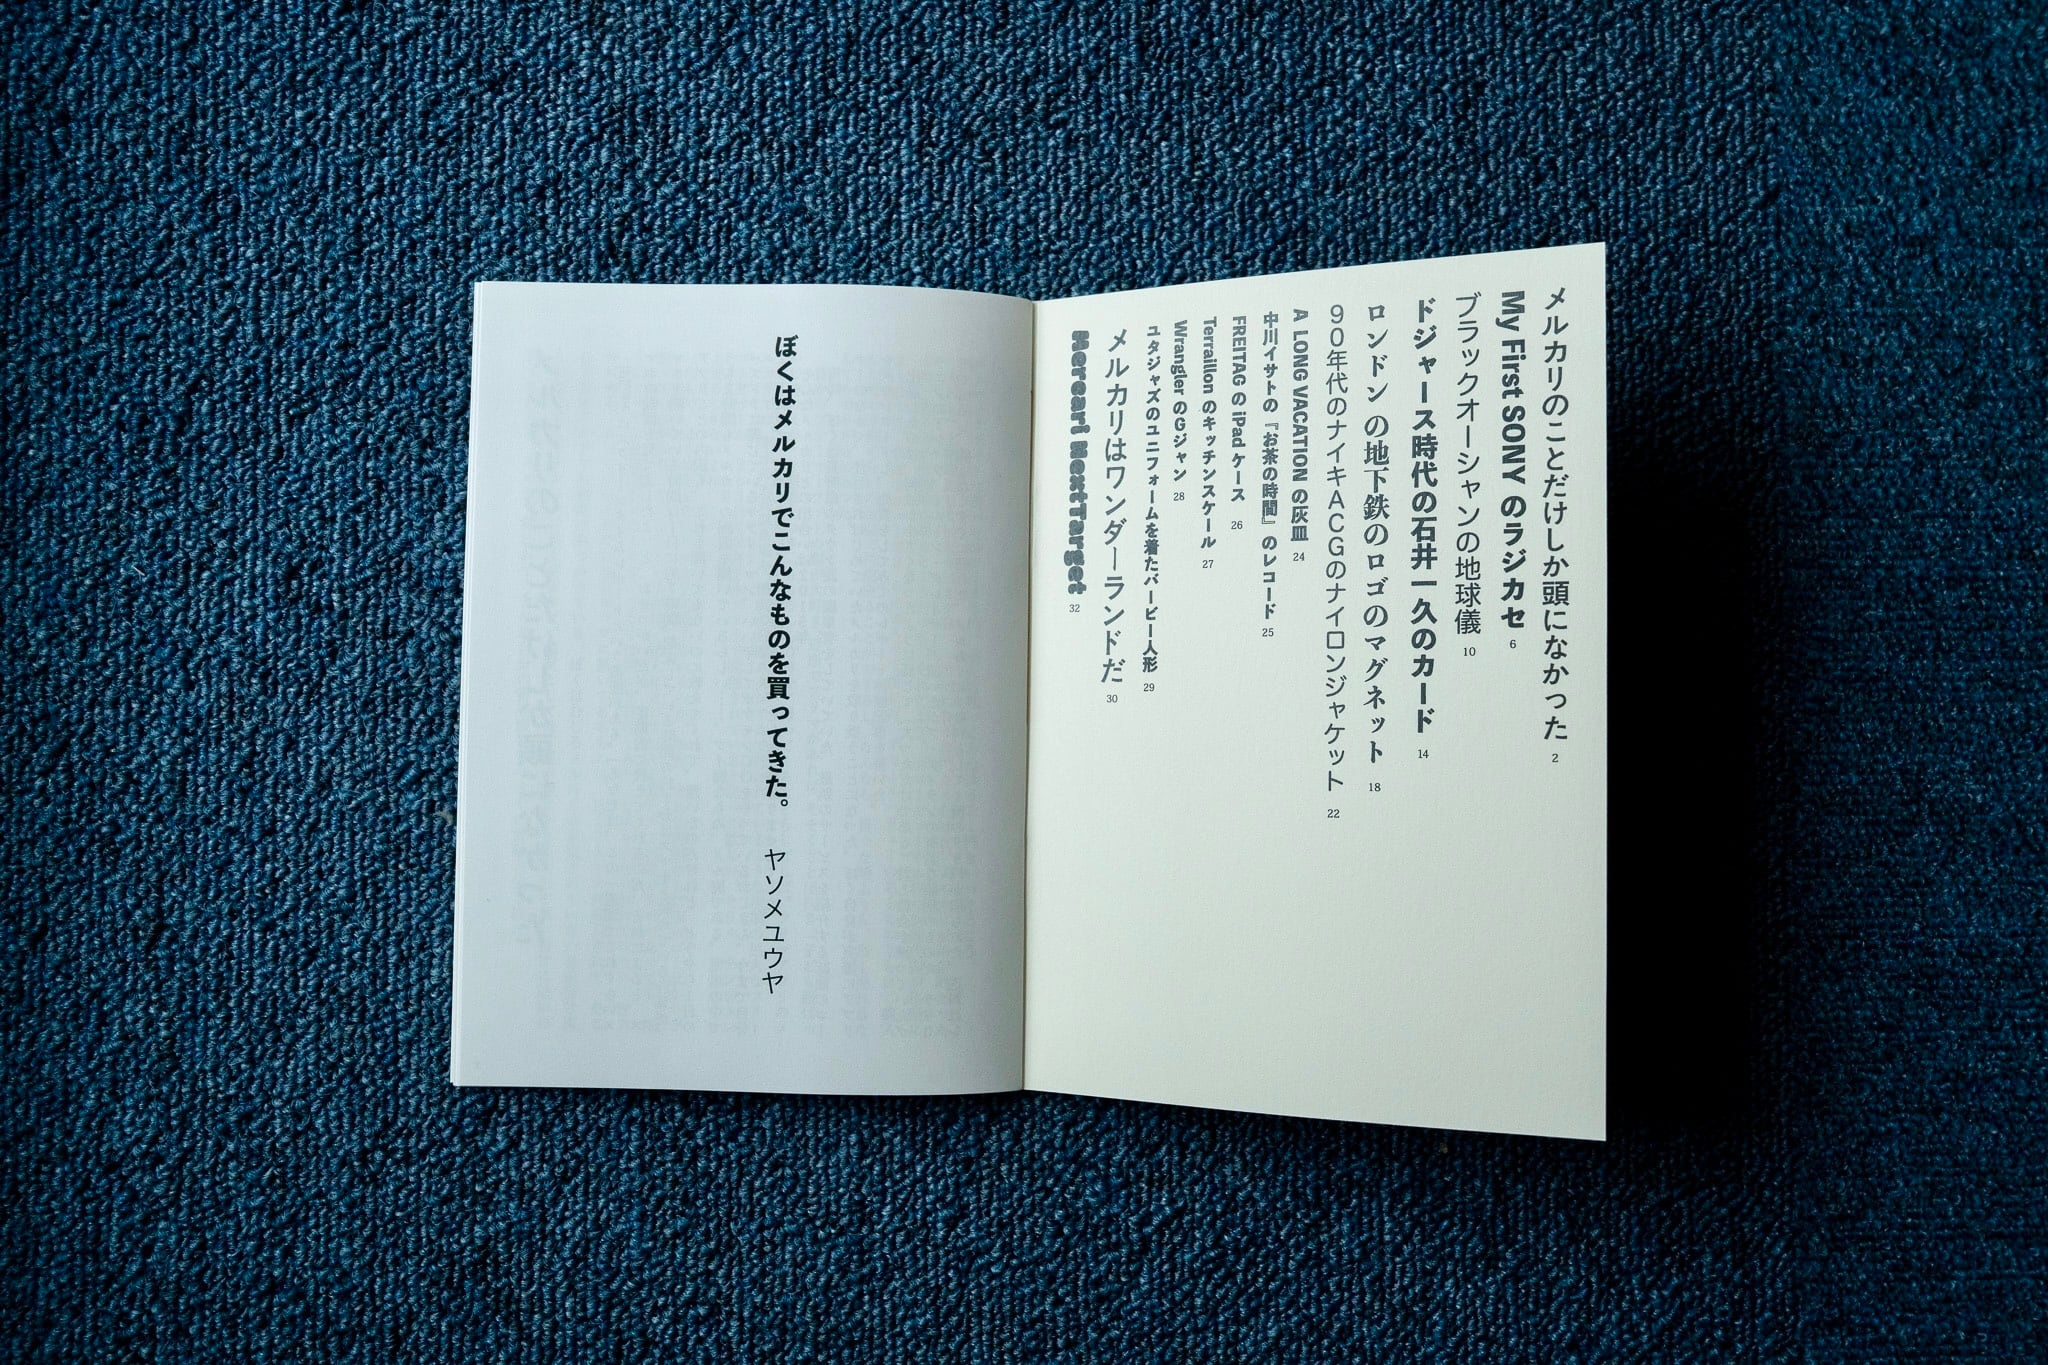 メルカリのことだけしか頭になかった 2
My First SONY のラジカセ 6
ブラックオーシャンの地球儀 10
ドジャース時代の石井一久のカード 14
ロンドンの地下鉄のロゴのマグネット 18
90年代のナイキACGのナイロンジャケット 22
A LONG VACATION の灰皿 24
中川イサトの『お茶の時間』のレコード 25
FREITAG の iPad ケース 26
Terraillon のキッチンスケール 27
Wrangler のGジャン 28
ユタジャズのユニフォームを着たバービー人形 29
メルカリはワンダーランドだ 30
Mercari NextTarget 32
ぼくはメルカリでこんなものを買ってきた。 ヤソメユウヤ